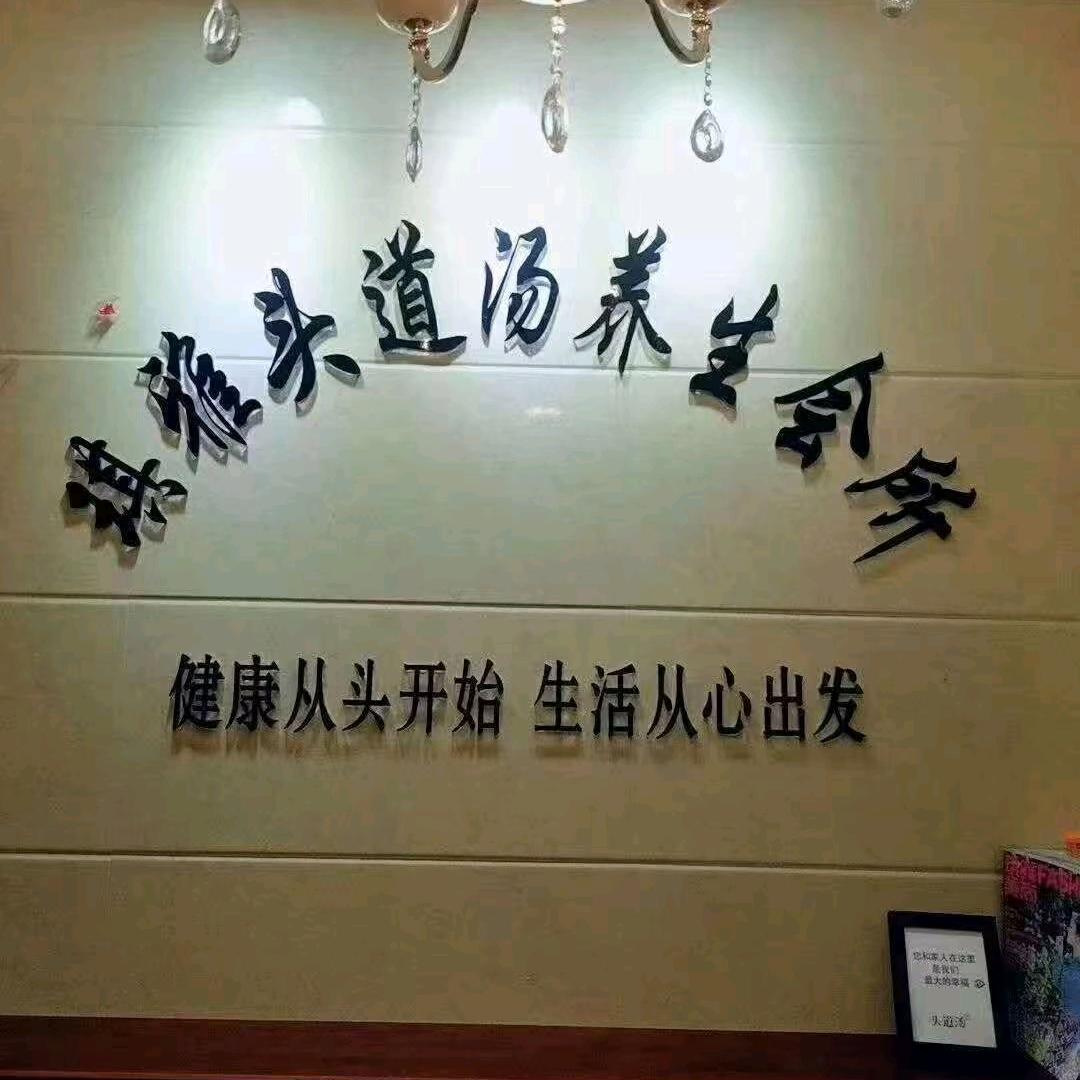 雅头道汤养生会所
健康从头开始 生活从心出发
您和家人在这里
是我们
最大的幸福
头道汤